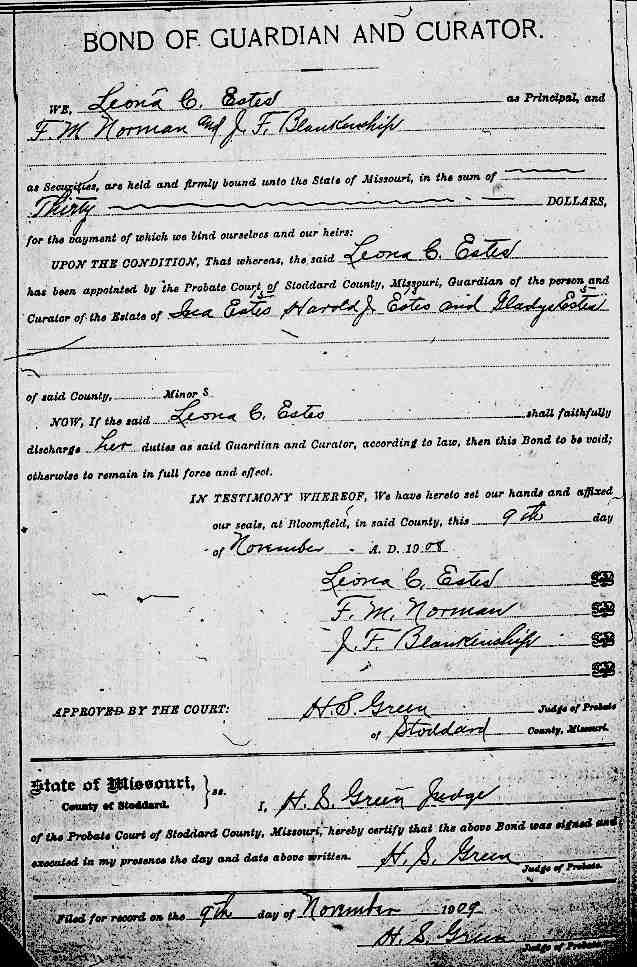 BOND OF GUARDIAN AND CURATOR.
WE, Leona C. Estes as Principal, and
F. M Norman and J. F. Blankenship
as Securities, are held and firmly bound unto the State of Missouri, in the sum of
Thirty DOLLARS,
for the payment of which we bind ourselves and our heirs:
UPON THE CONDITION, That whereas, the said Leona C. Estes
has been appointed by the Probate Court of Stoddard County, Missouri, Guardian of the person s and
Curator of the Estate s of Ina Estes Harold J Estes and Gladys Estes
of said County, Minor s
NOW, If the said Leona C. Estes shall faithfully
discharge her duties as said Guardian and Curator, according to law, then this Bond to be void;
otherwise to remain in full force and effect.
IN TESTIMONY WHEREOF, We have hereto set our hands and affixed
our seals, at Bloomfield, in said County, this 9th day
of November A. D. 1908
Leona C. Estes
F. M. Norman
J. F. Blankenship
APPROVED BY THE COURT: H. S. Green Judge of Probate
of Stoddard County, Missouri.
State of Missouri,
County of Stoddard. } ss.
I, H. S. Green Judge
of the Probate Court of Stoddard County, Missouri, hereby certify that the above Bond was signed and
executed in my presence the day and date above written. H. S. Green
Judge of Probate.
Filed for record on the 9th day of November 1909
H. S. Green
Judge of Probate.